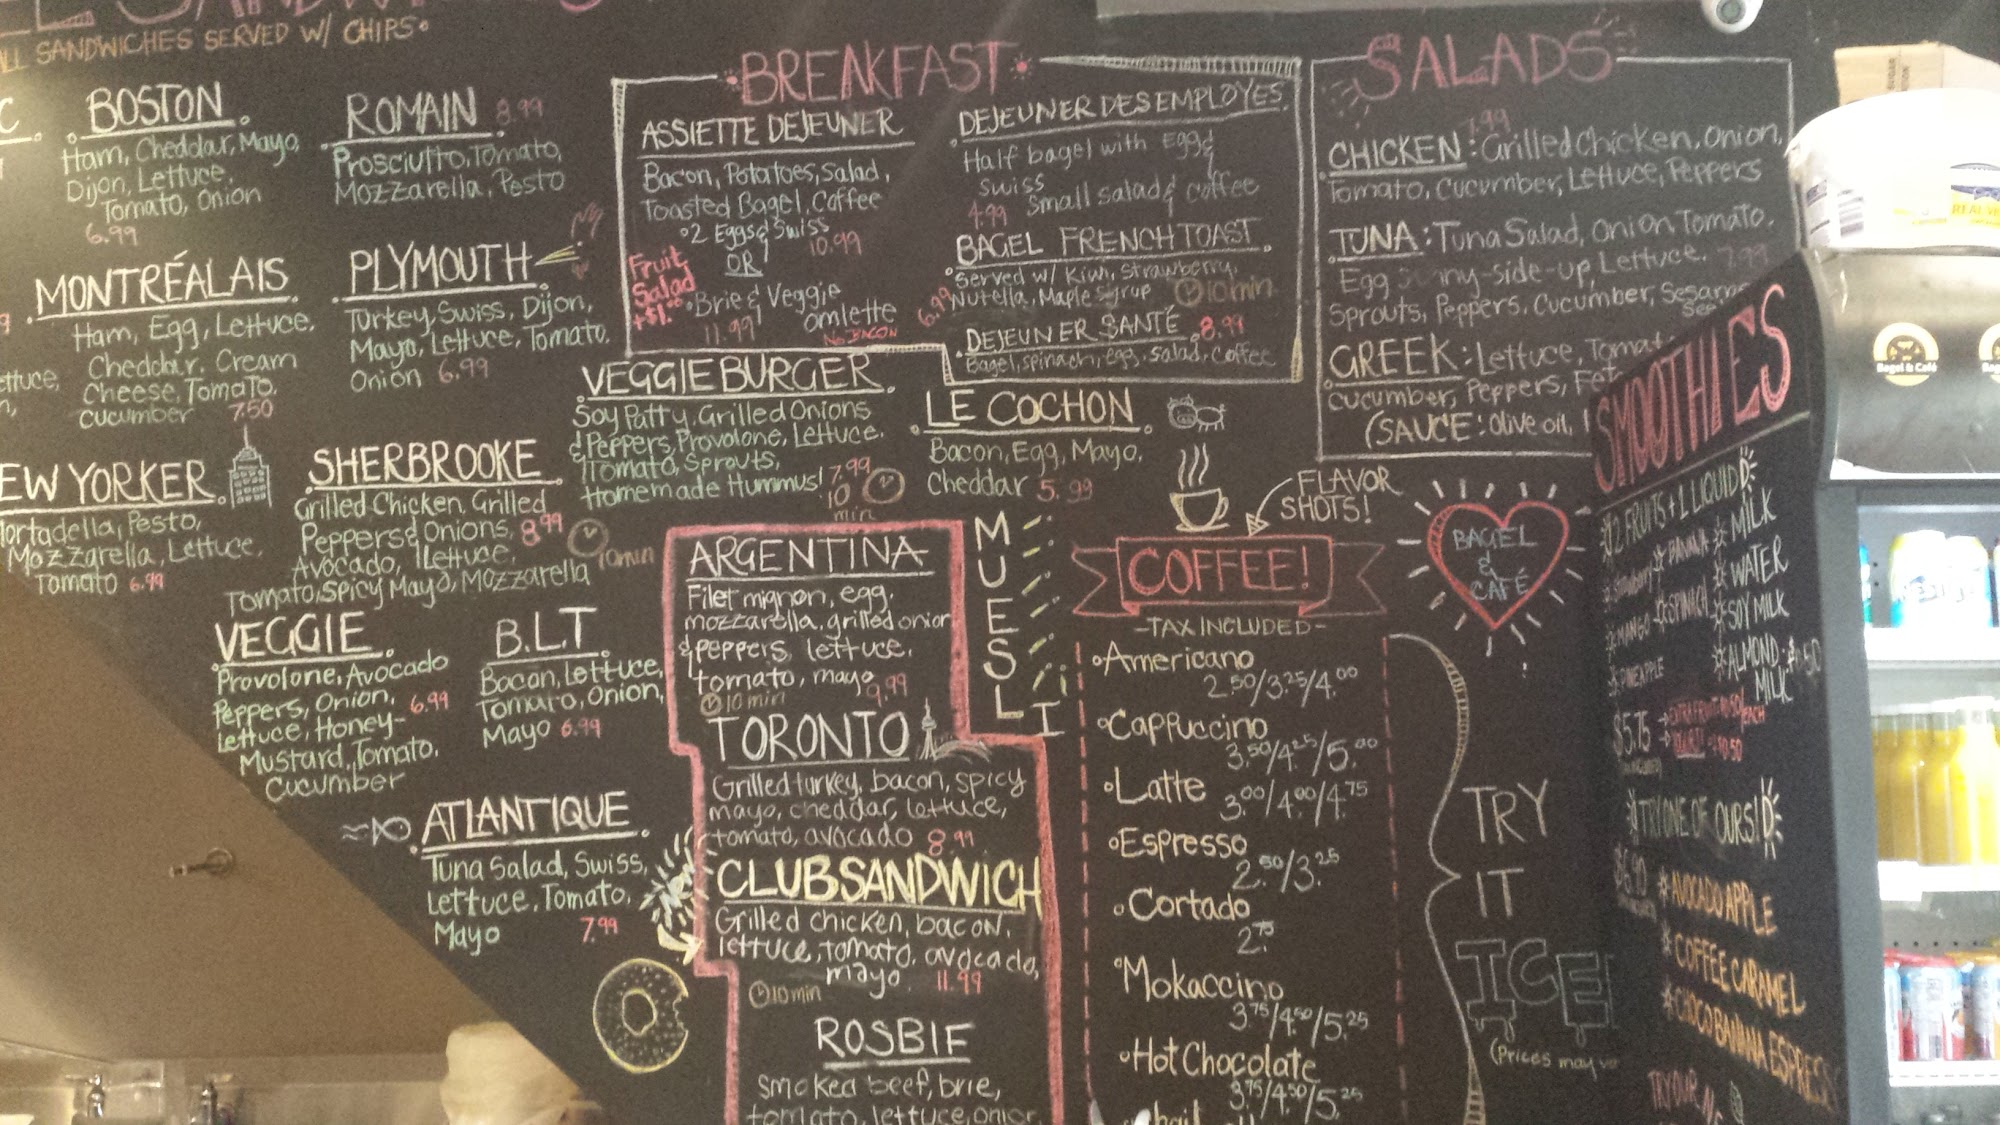 ALL SANDWICHES SERVED W/ CHIPS
BOSTON
Ham, Cheddar, Mayo,
Dijon, Lettuce,
Tomato, Onion
6.99
MONTRÉALAIS
Ham, Egg, Lettuce,
Cheddar, Cream
Cheese, Tomato,
Cucumber 7.50
EW YORKER
Mortadella, Pesto,
Mozzarella, Lettuce,
Tomato 6.99
ROMAIN 8.99
Prosciutto, Tomato,
Mozzarella, Pesto
PLYMOUTH
Turkey, Swiss, Dijon,
Mayo, Lettuce, Tomato,
Onion 6.99
SHERBROOKE
Grilled Chicken, Grilled
Peppers & Onions, 8.99
Avocado, Lettuce, 10min
Tomato, Spicy Mayo, Mozzarella
VEGGIE
Provolone, Avocado
Peppers, Onion, 6.99
Lettuce, Honey-
Mustard, Tomato,
Cucumber
B.L.T
Bacon, Lettuce,
Tomato, Onion,
Mayo 6.99
ATLANTIQUE
Tuna Salad, Swiss,
Lettuce, Tomato,
Mayo 7.99
BREAKFAST
ASSIETTE DEJEUNER
Bacon, Potatoes, Salad,
Toasted Bagel, Coffee
2 Eggs & Swiss
10.99
OR
Brie & Veggie
Omlette
11.99 No BACON
Fruit
Salad
+$1.00
DEJEUNER DES EMPLOYES
Half bagel with Egg &
Swiss
4.99 Small salad & coffee
BAGEL FRENCH TOAST
Served w/ Kiwi, Strawberry,
Nutella, Maple Syrup 10min
6.99
DEJEUNER SANTÉ 8.99
Bagel, spinach, egg, salad, coffee
VEGGIE BURGER
Soy Patty, Grilled Onions
& Peppers, Provolone, Lettuce,
Tomato, Sprouts,
Homemade Hummus! 7.99
10
min
LE COCHON
Bacon, Egg, Mayo,
Cheddar 5.99
ARGENTINA
Filet mignon, egg,
mozzarella, grilled onion
& peppers, lettuce,
tomato, mayo 9.99
10min
TORONTO
Grilled turkey, bacon, spicy
mayo, cheddar, lettuce,
tomato, avocado 8.99
CLUB SANDWICH
Grilled chicken, bacon,
lettuce, tomato, avocado,
mayo 11.99
10min
ROSBIF
Smoked beef, brie,
tomato, lettuce, onion,
MUESLI
FLAVOR
SHOTS!
COFFEE!
-TAX INCLUDED-
Americano
2.50/3.25/4.00
Cappuccino
3.50/4.25/5.00
Latte
3.00/4.00/4.75
Espresso
2.50/3.25
Cortado
2.75
Mokaccino
3.75/4.50/5.25
Hot Chocolate
3.75/4.50/5.25
TRY
IT
ICE
(Prices may
BAGEL
&
CAFÉ
SALADS
7.99
CHICKEN: Grilled Chicken, Onion,
Tomato, Cucumber, Lettuce, Peppers
TUNA: Tuna Salad, Onion Tomato,
Egg -side-up, Lettuce, 7.99
Sprouts, Peppers, Cucumber, Sesame
See
GREEK: Lettuce, Tomat
Cucumber, Peppers, Fet
(SAUCE: Olive oil,
SMOOTHIES
2 FRUITS + 1 LIQUID
Strawberry BANANA MILK
MANGO SPINACH WATER
PINEAPPLE SOY MILK
ALMOND
MILK
$5.75
TRY ONE OF OURS!
$6.90
AVOCADO APPLE
COFFEE CARAMEL
CHOCO BANANA ESPRESS
TRY OUR
Bagel & Café